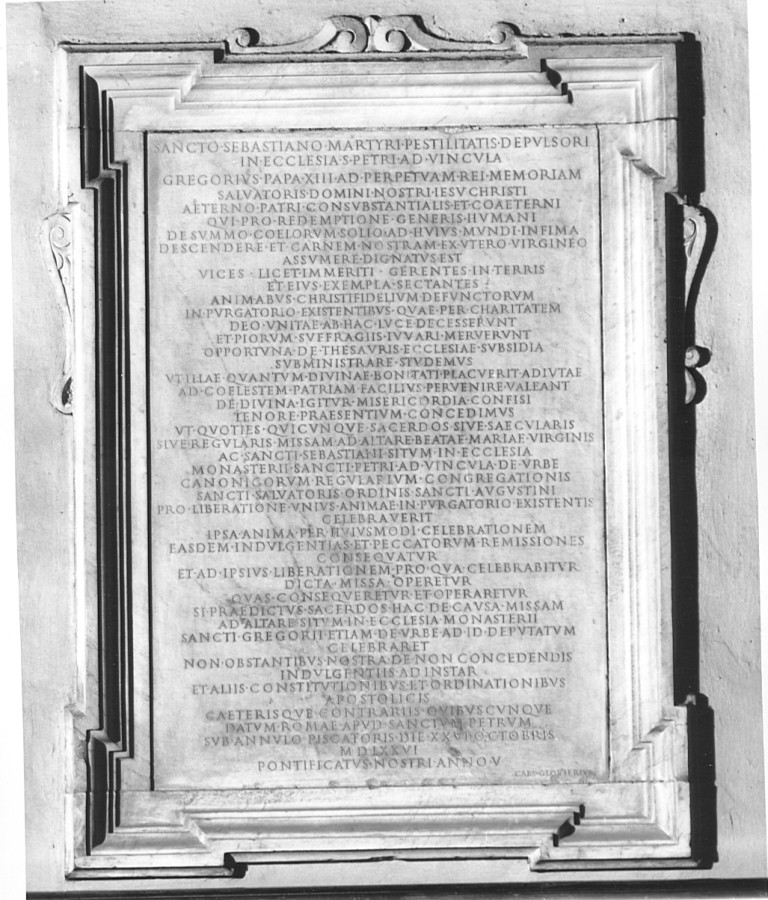 SANCTO·SEBASTIANO·MARTYRI·PESTILITATIS·DEPVLSORI
IN·ECCLESIA·S·PETRI·AD·VINCVLA
GREGORIVS·PAPA·XIII·AD·PERPETVAM·REI·MEMORIAM
SALVATORIS·DOMINI·NOSTRI·IESV·CHRISTI
AETERNO·PATRI·CONSVBSTANTIALIS·ET·COAETERNI
QVI·PRO·REDEMPTIONE·GENERIS·HVMANI
DE·SVMMO·COELORVM·SOLIO·AD·HVIVS·MVNDI·INFIMA
DESCENDERE·ET·CARNEM·NOSTRAM·EX·VTERO·VIRGINEO
ASSVMERE·DIGNATVS·EST
VICES·LICET·IMMERITI·GERENTES·IN·TERRIS
ET·EIVS·EXEMPLA·SECTANTES
ANIMABVS·CHRISTIFIDELIVM·DEFVNCTORVM
IN·PVRGATORIO·EXISTENTIBVS·QVAE·PER·CHARITATEM
DEO·VNITAE·AB·HAC·LVCE·DECESSERVNT
ET·PIORVM·SVFFRAGIIS·IVVARI·MERVERVNT
OPPORTVNA·DE·THESAVRIS·ECCLESIAE·SVBSIDIA
SVBMINISTRARE·STVDEMVS
VT·ILLAE·QVANTVM·DIVINAE·BONITATI·PLACVERIT·ADIVTAE
AD·COELESTEM·PATRIAM·FACILIVS·PERVENIRE·VALEANT
DE·DIVINA·IGITVR·MISERICORDIA·CONFISI
TENORE·PRAESENTIVM·CONCEDIMVS
VT·QVOTIES·QVICVNQVE·SACERDOS·SIVE·SAECVLARIS
SIVE·REGVLARIS·MISSAM·AD·ALTARE·BEATAE·MARIAE·VIRGINIS
AC·SANCTI·SEBASTIANI·SITVM·IN·ECCLESIA
MONASTERII·SANCTI·PETRI·AD·VINCVLA·DE·VRBE
CANONICORVM·REGVLARIVM·CONGREGATIONIS
SANCTI·SALVATORIS·ORDINIS·SANCTI·AVGVSTINI
PRO·LIBERATIONE·VNIVS·ANIMAE·IN·PVRGATORIO·EXISTENTIS
CELEBRAVERIT
IPSA·ANIMA·PER·HVIVSMODI·CELEBRATIONEM
EASDEM·INDVLGENTIAS·ET·PECCATORVM·REMISSIONES
CONSEQVATVR
ET·AD·IPSIVS·LIBERATIONEM·PRO·QVA·CELEBRABITVR
DICTA·MISSA·OPERETVR
QVAS·CONSEQVERETVR·ET·OPERARETVR
SI·PRAEDICTVS·SACERDOS·HAC·DE·CAVSA·MISSAM
AD·ALTARE·SITVM·IN·ECCLESIA·MONASTERII
SANCTI·GREGORII·ETIAM·DE·VRBE·AD·ID·DEPVTATVM
CELEBRARET
NON·OBSTANTIBVS·NOSTRA·DE·NON·CONCEDENDIS
INDVLGENTIIS·AD·INSTAR
ET·ALIIS·CONSTITVTIONIBVS·ET·ORDINATIONIBVS
APOSTOLICIS
CAETERISQVE·CONTRARIIS·QVIBVSCVNQVE
DATVM·ROMAE·APVD·SANCTVM·PETRVM
SVB·ANNVLO·PISCATORIS·DIE·XXVI·OCTOBRIS
MDLXXVI
PONTIFICATVS·NOSTRI·ANNO·V
CAES·GLORIERIVS